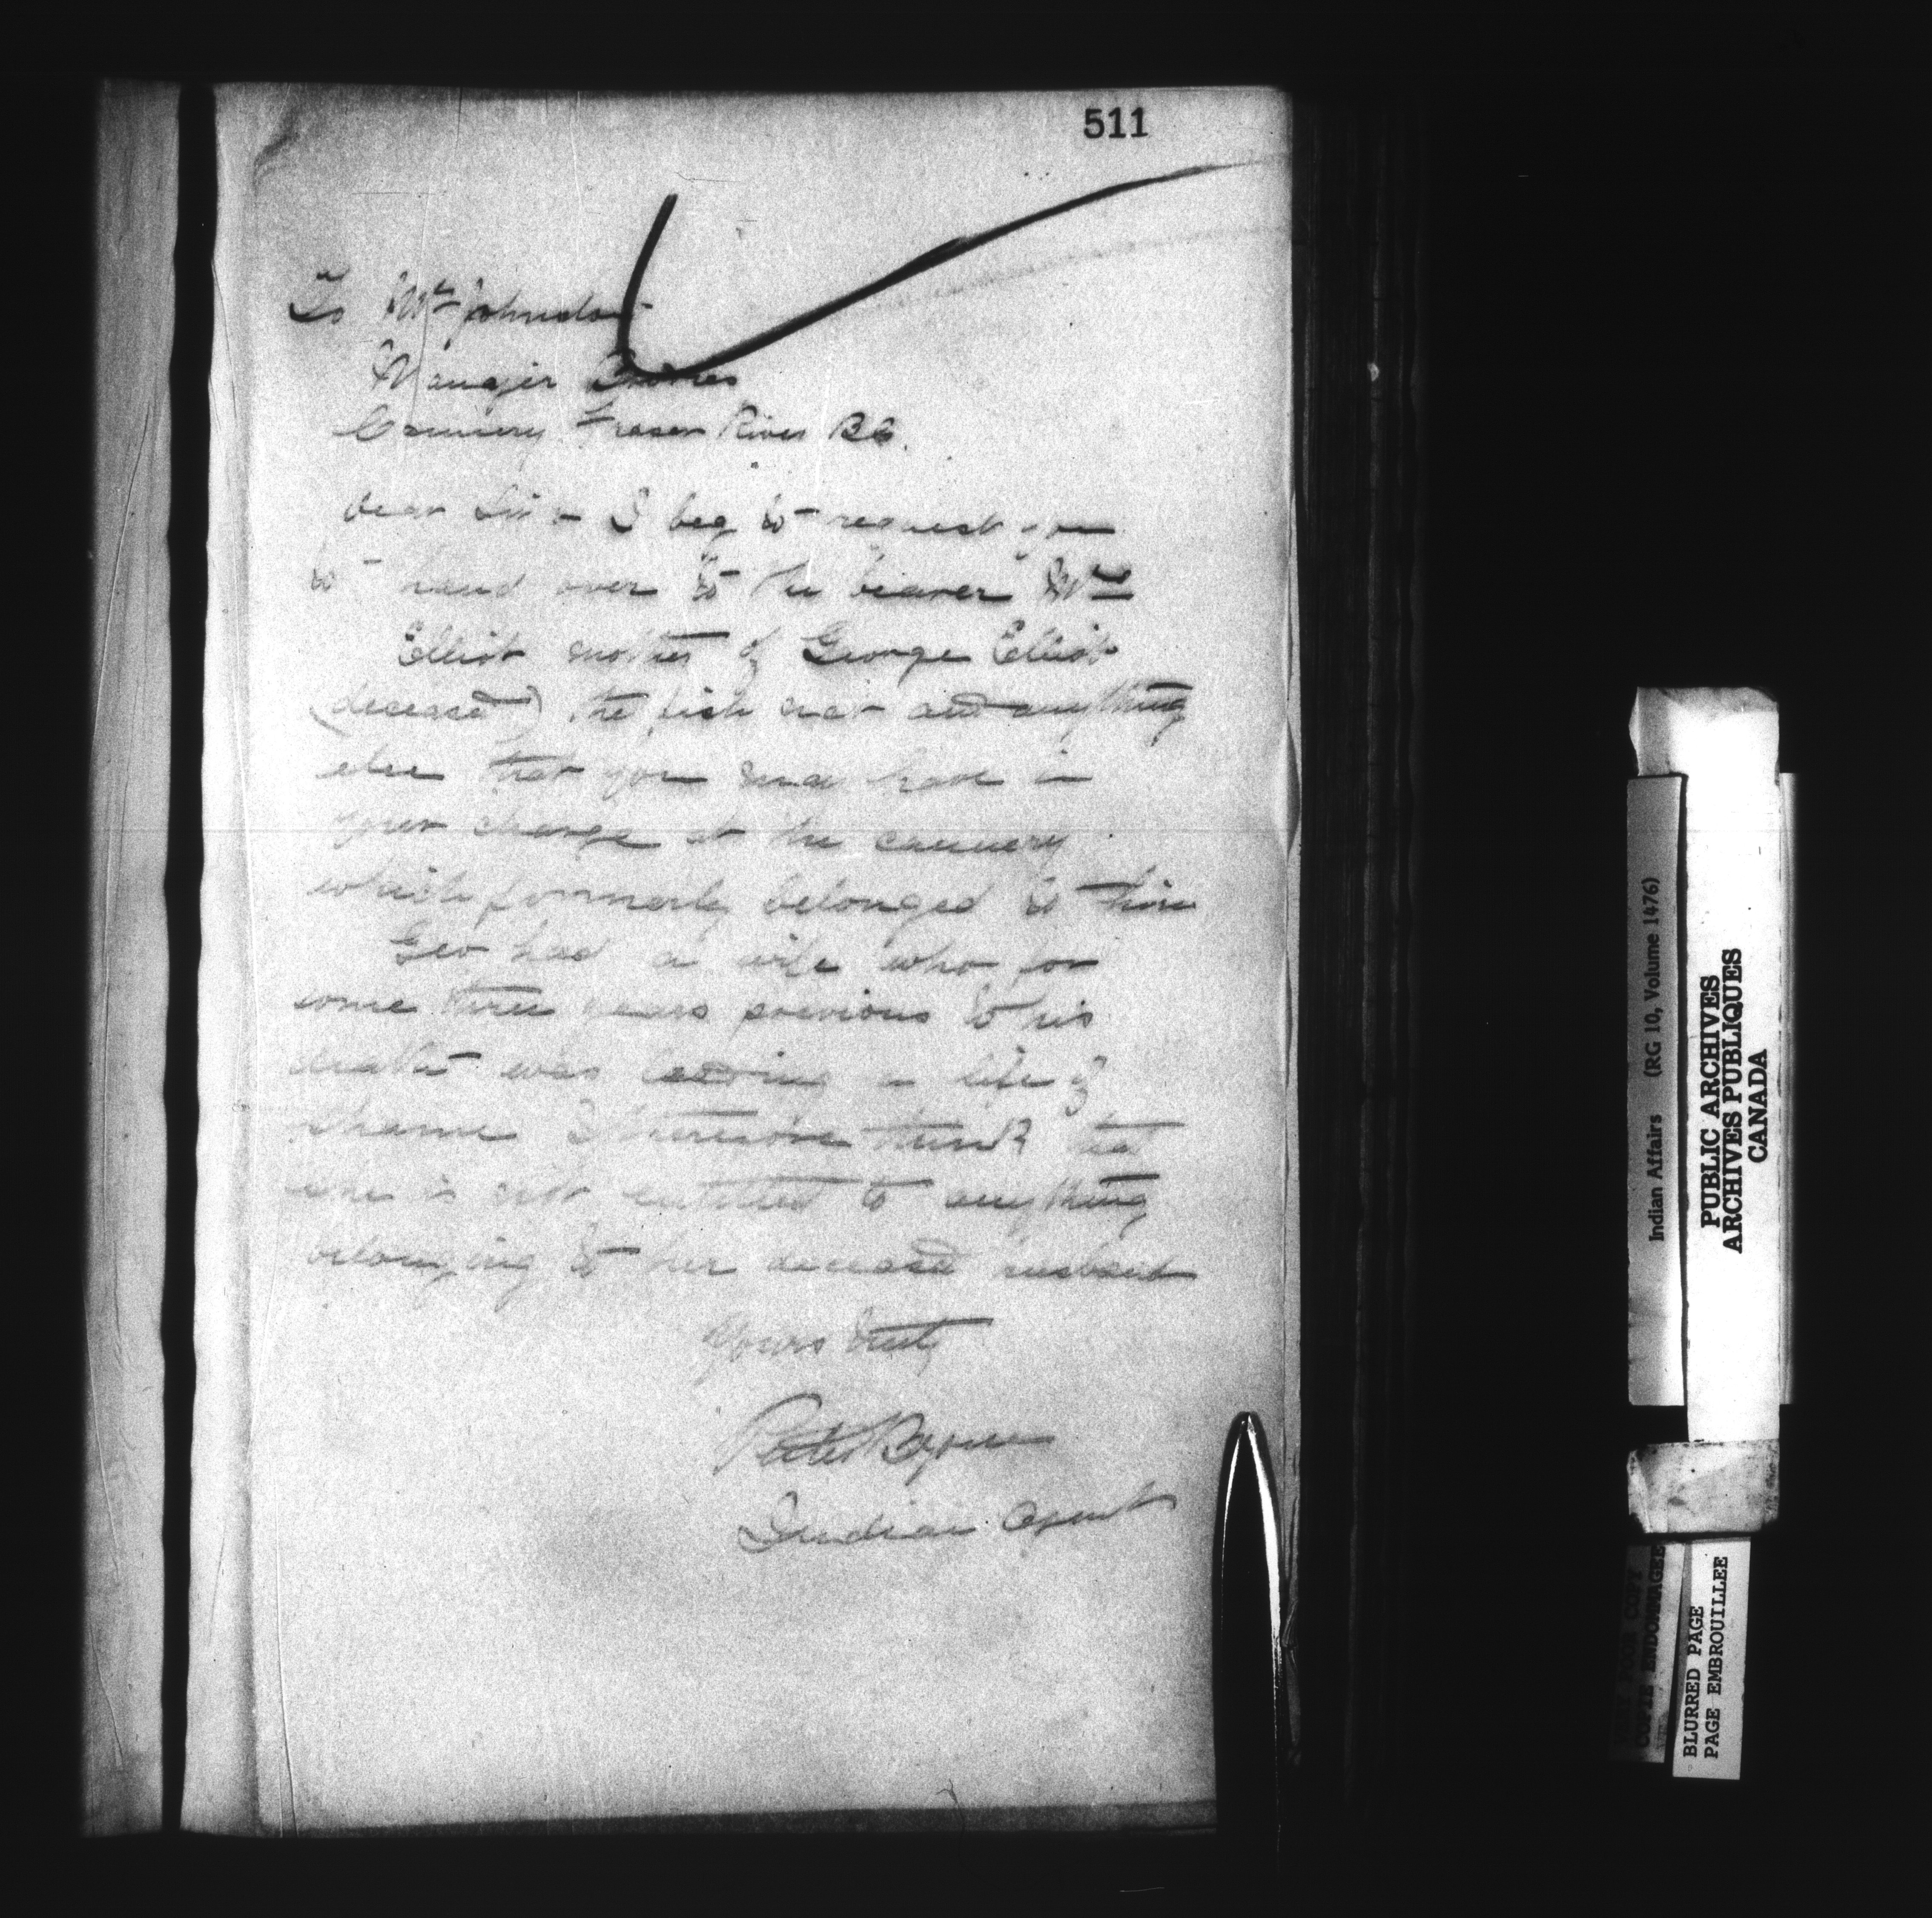 511
To Mr Johnston
Manager
Cannery Fraser River BC.
Dear Sir - I beg to request you
to hand over to the bearer Mrs
Elliot mother of George Elliot
(deceased) the fish net and anything
else that you may have in
your charge at the cannery
which formerly belonged to him
Geo had a wife who for
some three years previous to his
death was leading a life of
shame I therefore think that
she is not entitled to anything
belonging to her deceased husband
Yours truly
Peter Byrne
Indian Agent
Indian Affairs (RG 10, Volume 1476)
PUBLIC ARCHIVES
ARCHIVES PUBLIQUES
CANADA
COPY
BLURRED PAGE
PAGE EMBROUILLEE